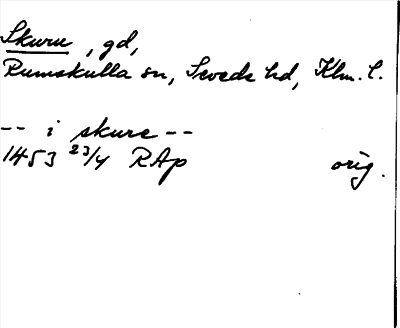 Skuru, gd,
Rumskulla sn, Sevede hd, Klm. l.
-- i skure --
1453 23/4 RAp orig.